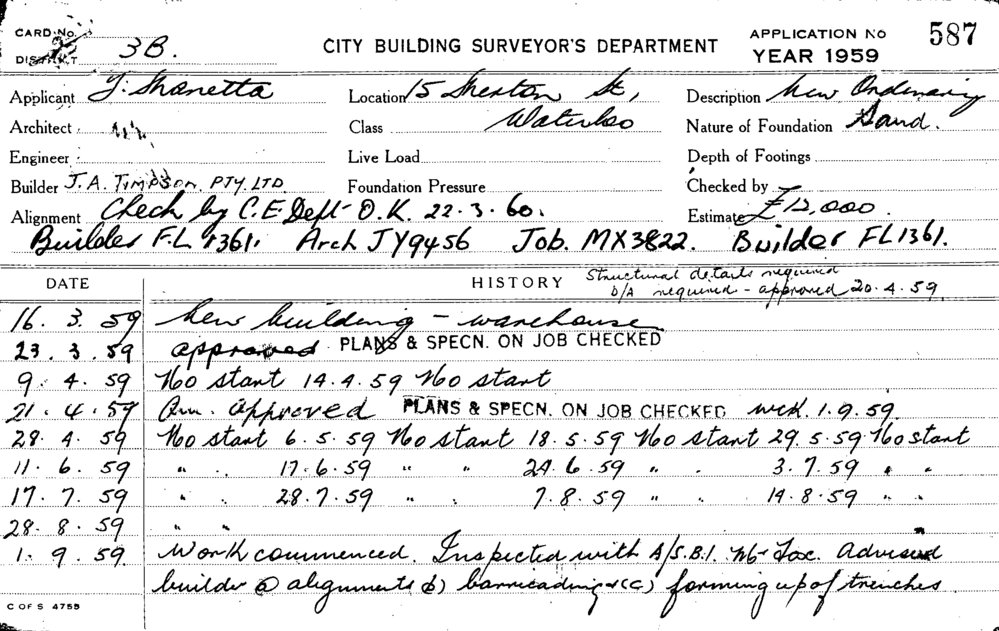 CARD No.
DISTRICT 3B. CITY BUILDING SURVEYOR'S DEPARTMENT APPLICATION No 587
YEAR 1959
Applicant Location 15 St, Description New Ordinary
Architect Class Waterloo Nature of Foundation Sand.
Engineer Live Load Depth of Footings
Builder J.A. TIMPSON. PTY. LTD. Foundation Pressure Checked by
Alignment Check by C.E. Dept O.K. 22.3.60. Estimate £12,000.
Builder FL 1361. Arch JY9456 Job. MX3822. Builder FL1361.
DATE HISTORY Structural details required
D/A required - approved 20.4.59.
16. 3. 59 New building - warehouse
23. 3. 59 approved PLANS & SPECN. ON JOB CHECKED
9. 4. 59 No start 14.4.59 No start
21. 4. 59 Am. approved PLANS & SPECN. ON JOB CHECKED 1.9.59.
28. 4. 59 No start 6.5.59 No start 18.5.59 No start 29.5.59 No start
11. 6. 59 " " 17.6.59 " " 24.6.59 " " 3.7.59 " "
17. 7. 59 " " 28.7.59 " " 7.8.59 " " 14.8.59 " "
28. 8. 59 " "
1. 9. 59. Work commenced. Inspected with A/S.B.I. Mr Fox. Advised
builder @ alignments (b) barricading & (c) forming up of trenches
C OF S 4759